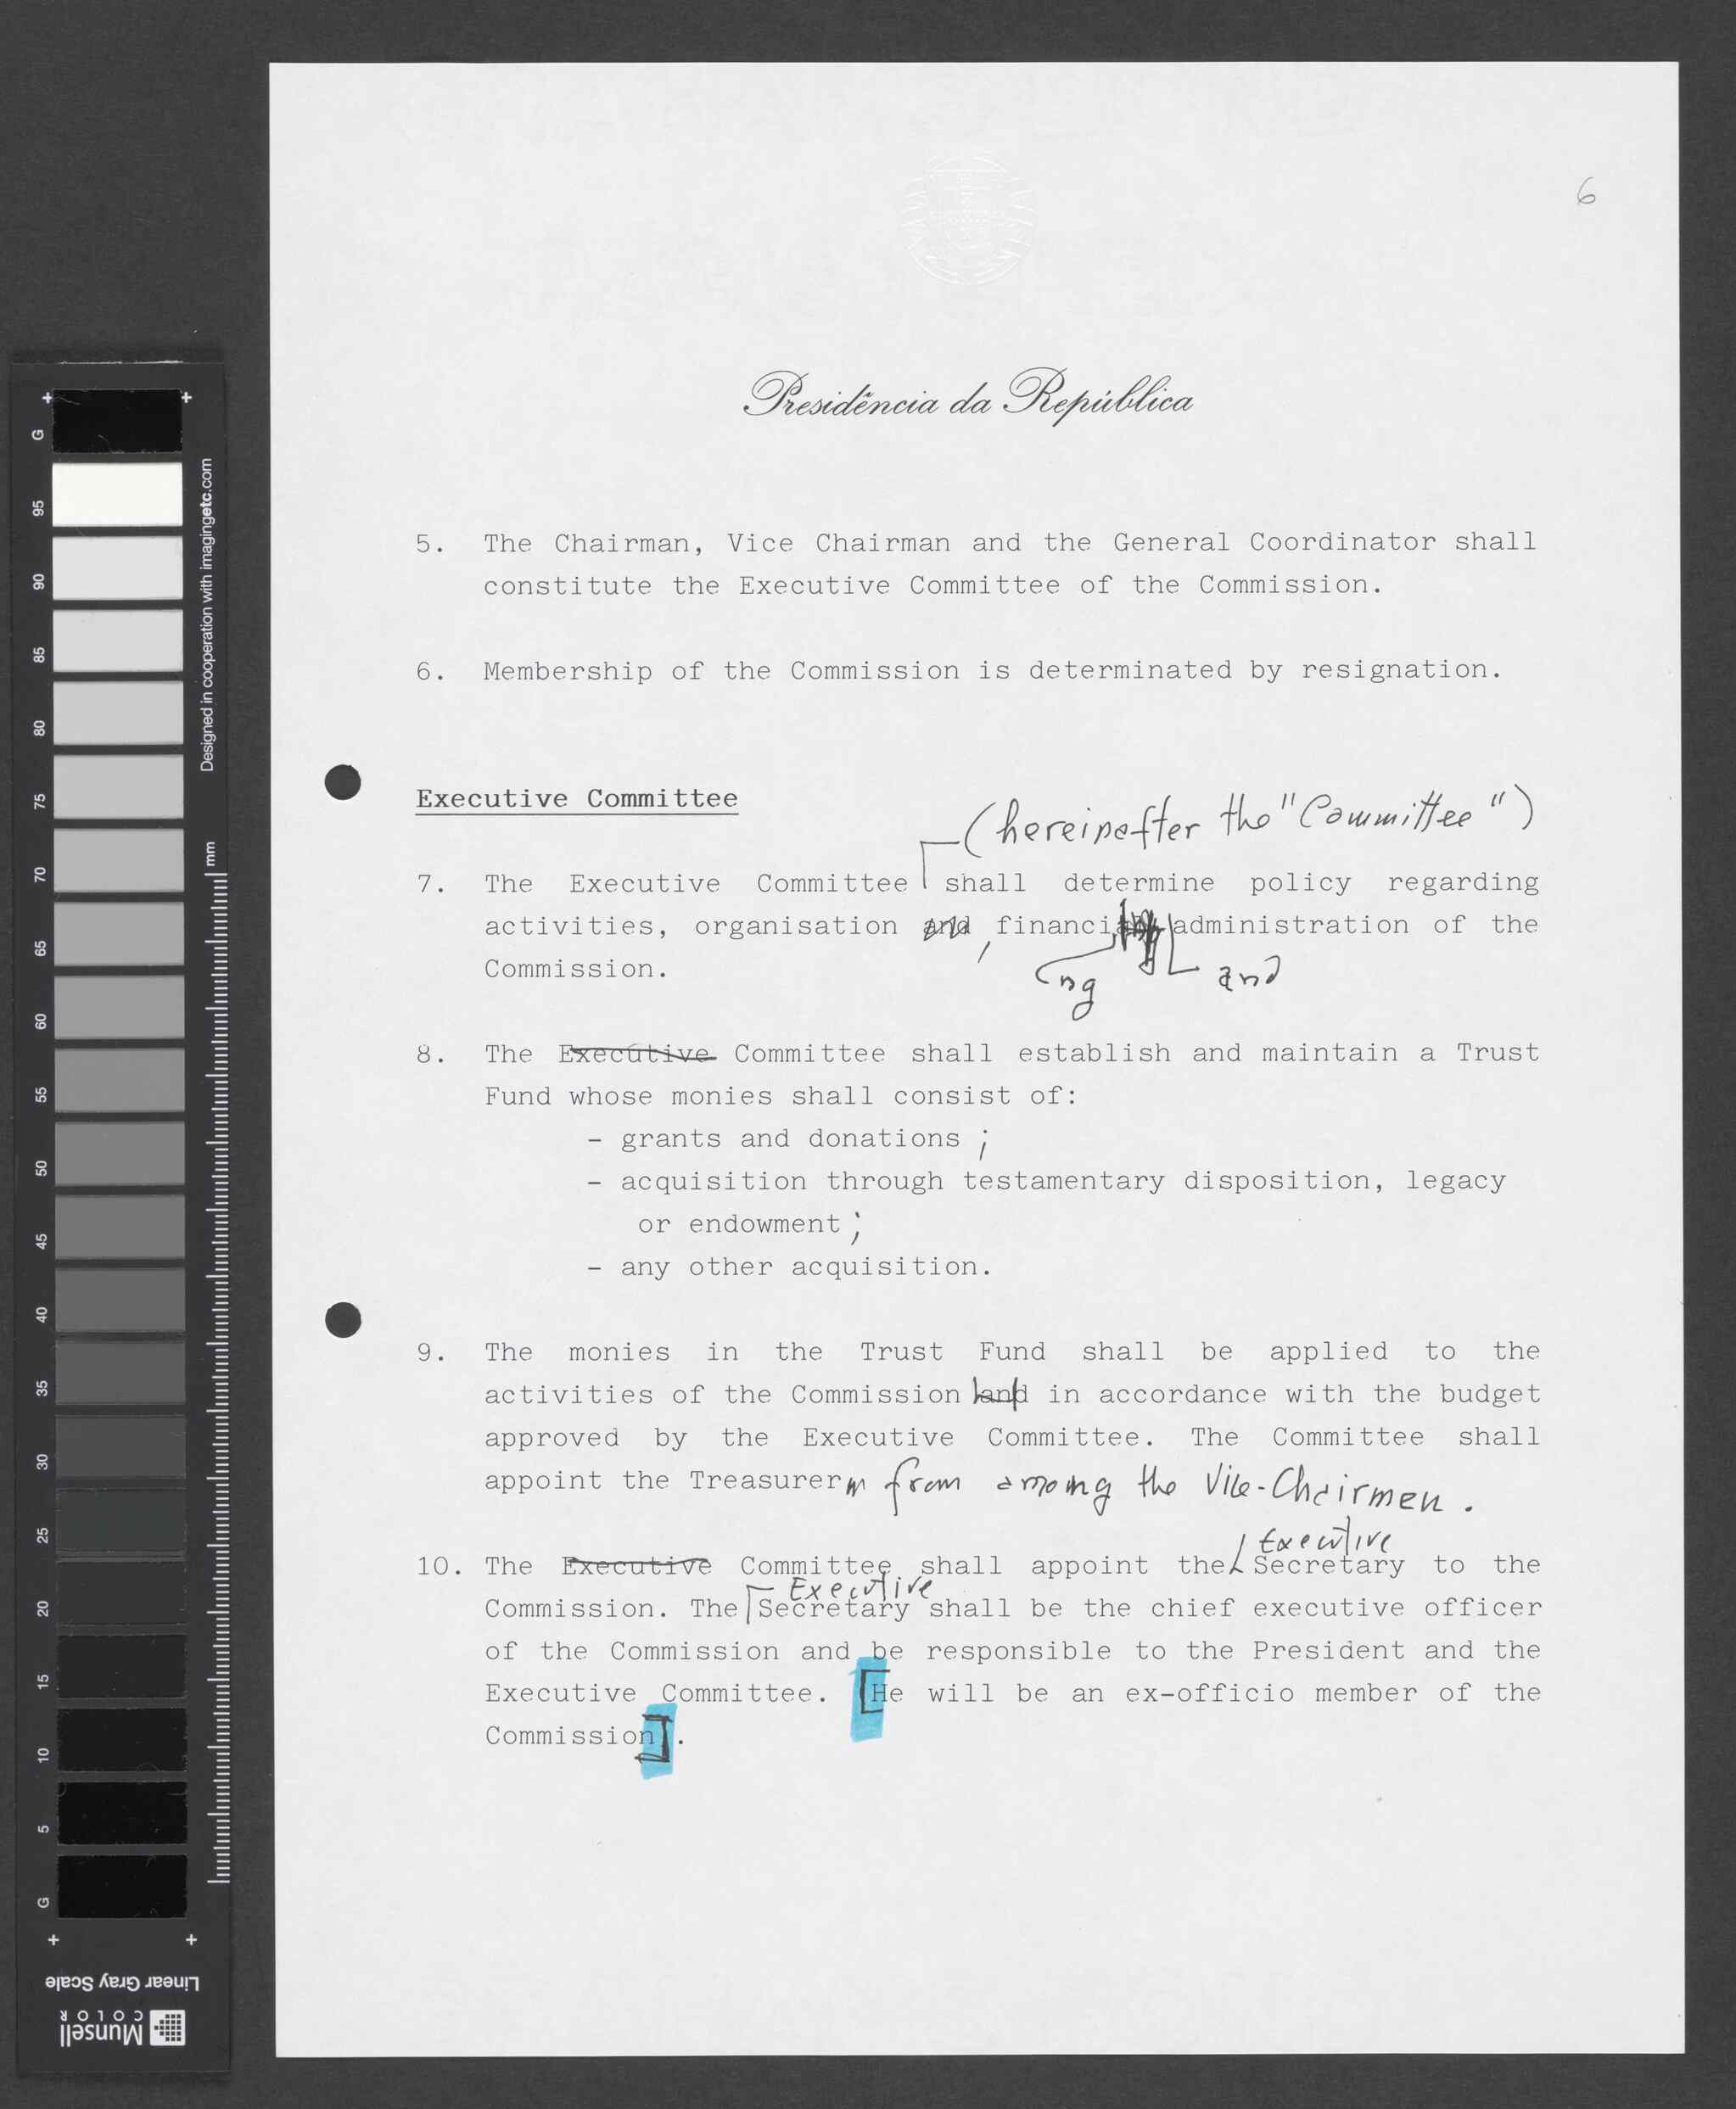 6
Presidência da República
5. The Chairman, Vice Chairman and the General Coordinator shall
constitute the Executive Committee of the Commission.
6. Membership of the Commission is determinated by resignation.
Executive Committee
(hereinafter the "Committee")
7. The Executive Committee shall determine policy regarding
activities, organisation and, financi administration of the
Commission.
ng and
8. The Executive Committee shall establish and maintain a Trust
Fund whose monies shall consist of:
- grants and donations ;
- acquisition through testamentary disposition, legacy
or endowment ;
- any other acquisition.
9. The monies in the Trust Fund shall be applied to the
activities of the Commission and in accordance with the budget
approved by the Executive Committee. The Committee shall
appoint the Treasurer from among the Vice-Chairmen.
Executive
10. The Executive Committee shall appoint the Secretary to the
Executive
Commission. The Secretary shall be the chief executive officer
of the Commission and be responsible to the President and the
Executive Committee. [He will be an ex-officio member of the
Commission].
G 95 90 85 80 75 70 65 60 55 50 45 40 35 30 25 20 15 10 5 G
Designed in cooperation with imagingetc.com
mm
Linear Gray Scale
Munsell
COLOR